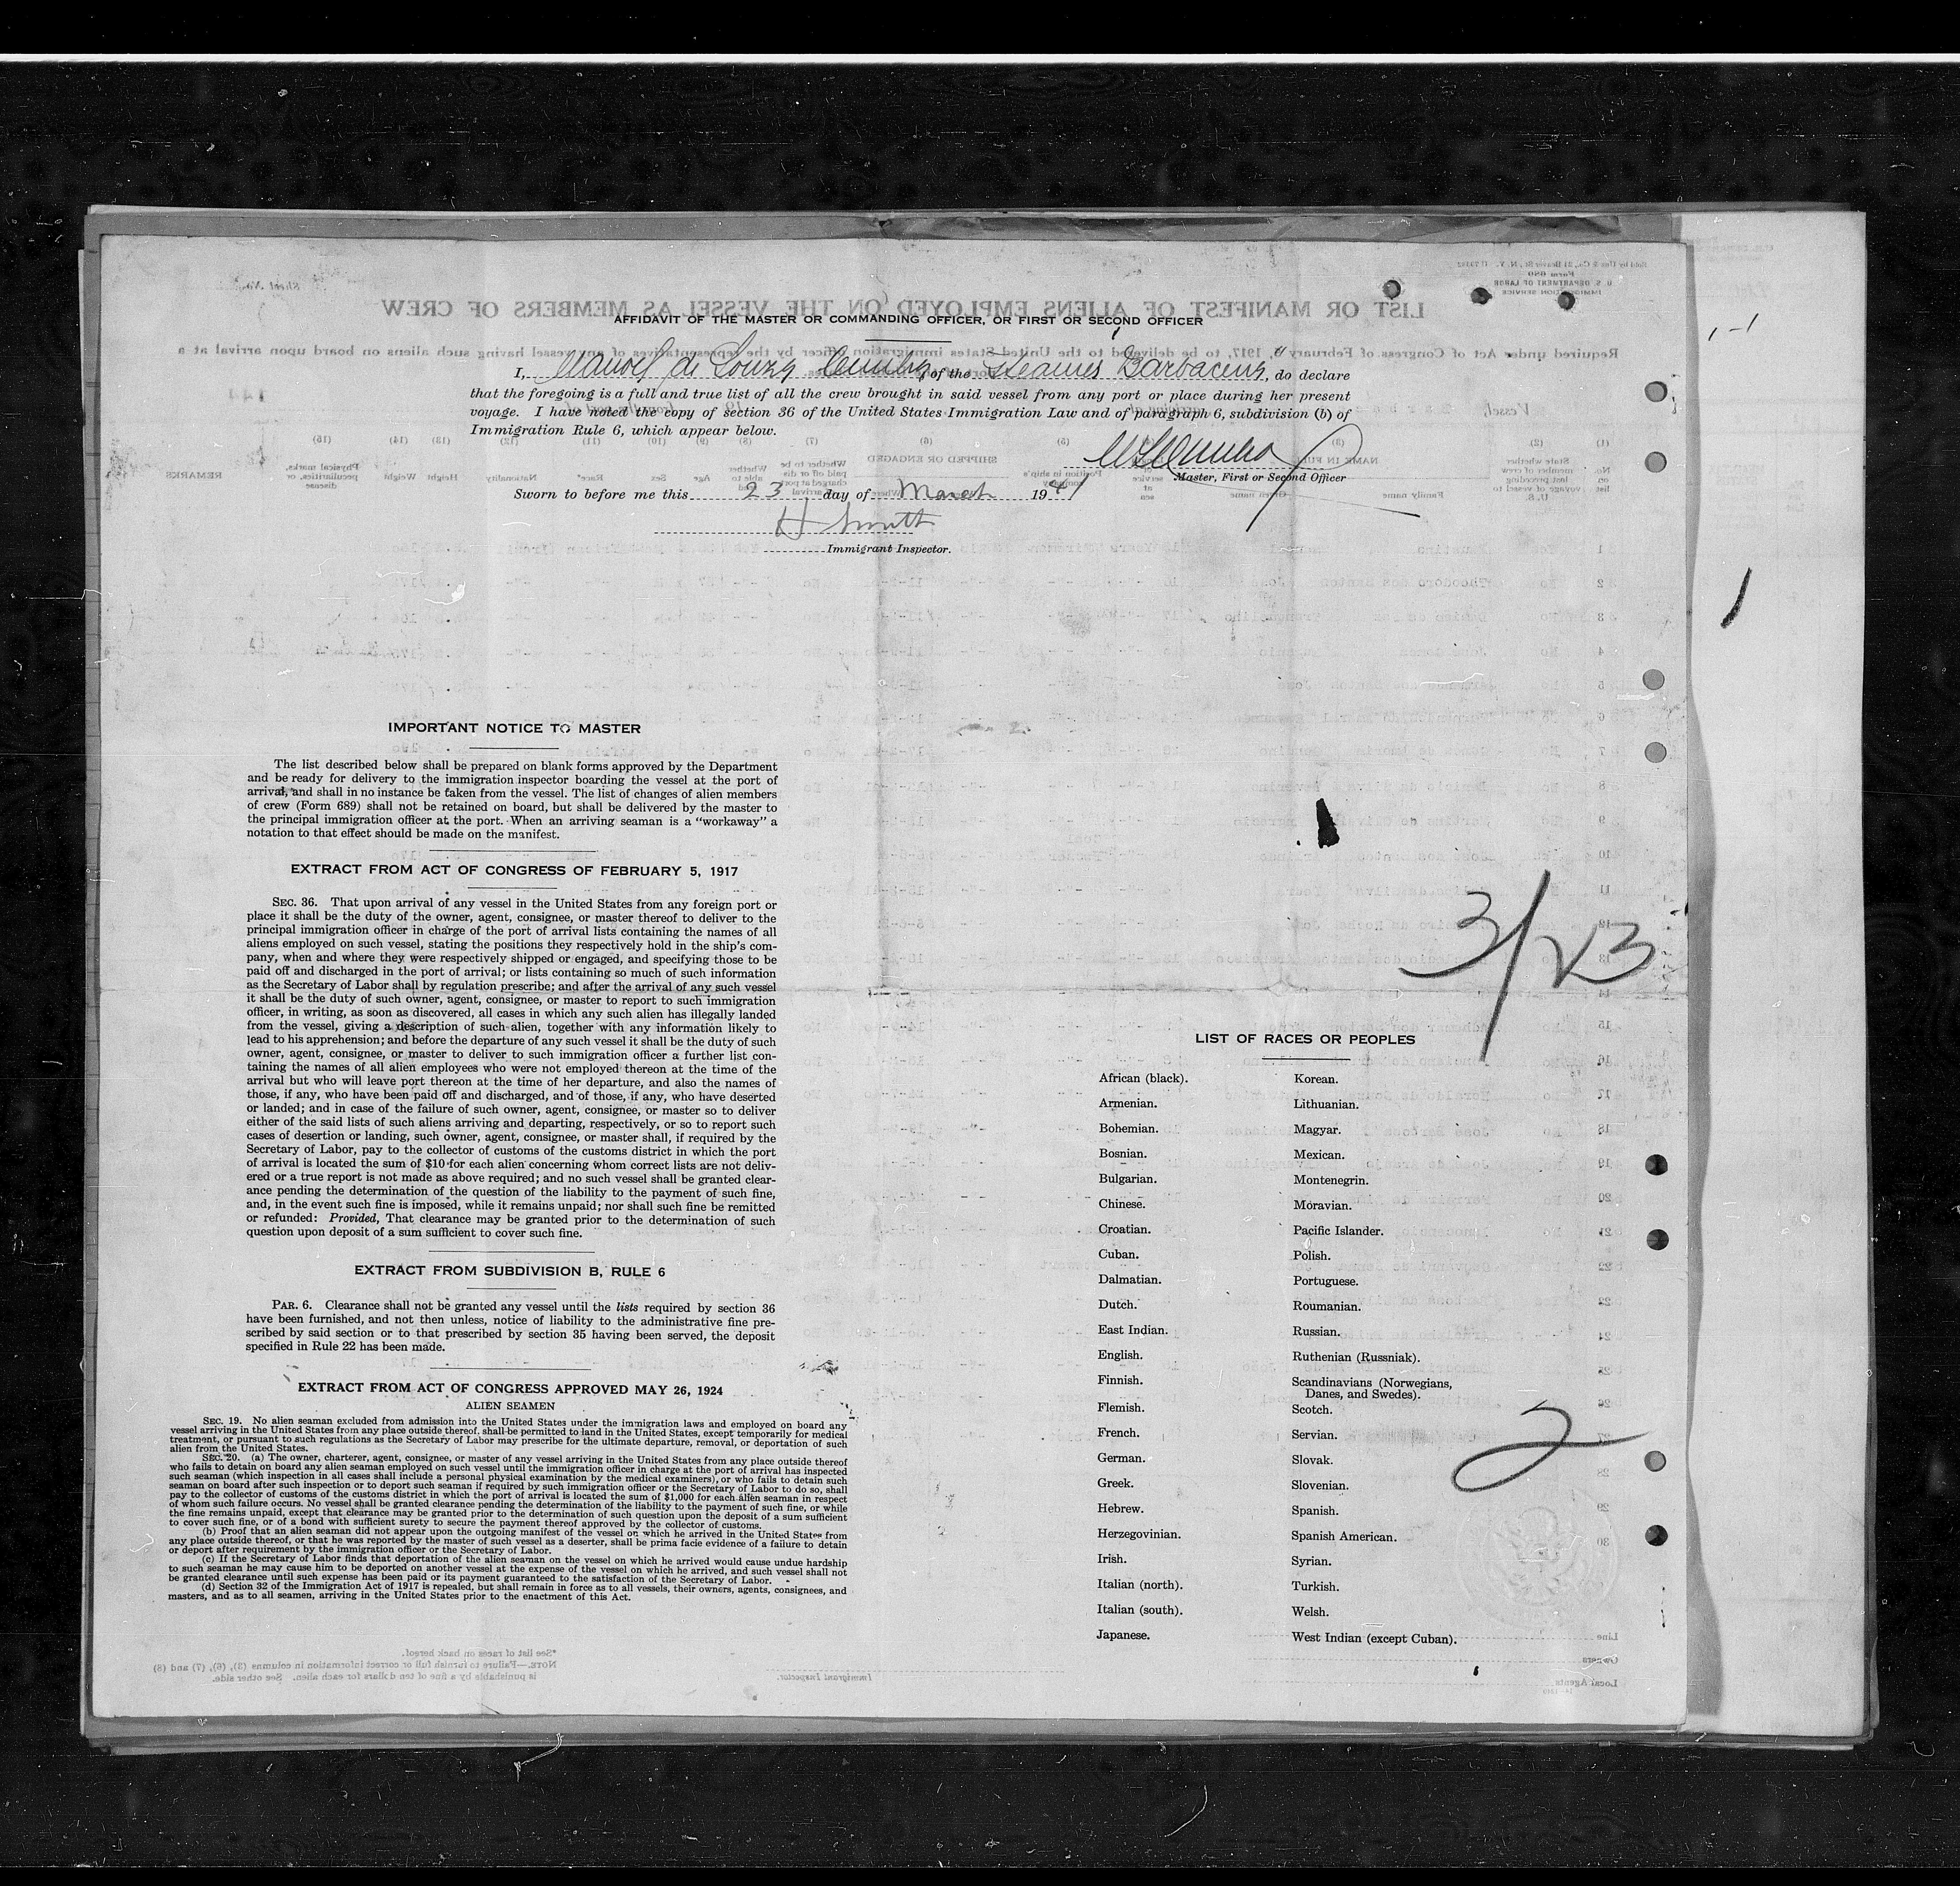 AFFIDAVIT OF THE MASTER OR COMMANDING OFFICER, OR FIRST OR SECOND OFFICER
I, Manoel de Souza Cunha, of the Steamer Barbacena, do declare
that the foregoing is a full and true list of all the crew brought in said vessel from any port or place during her present
voyage. I have noted the copy of section 36 of the United States Immigration Law and of paragraph 6, subdivision (b) of
Immigration Rule 6, which appear below.
Master, First or Second Officer
Sworn to before me this 23 day of March 1941
H Smith
Immigrant Inspector.
IMPORTANT NOTICE TO MASTER
The list described below shall be prepared on blank forms approved by the Department
and be ready for delivery to the immigration inspector boarding the vessel at the port of
arrival, and shall in no instance be taken from the vessel. The list of changes of alien members
of crew (Form 689) shall not be retained on board, but shall be delivered by the master to
the principal immigration officer at the port. When an arriving seaman is a "workaway" a
notation to that effect should be made on the manifest.
EXTRACT FROM ACT OF CONGRESS OF FEBRUARY 5, 1917
SEC. 36. That upon arrival of any vessel in the United States from any foreign port or
place it shall be the duty of the owner, agent, consignee, or master thereof to deliver to the
principal immigration officer in charge of the port of arrival lists containing the names of all
aliens employed on such vessel, stating the positions they respectively hold in the ship's com-
pany, when and where they were respectively shipped or engaged, and specifying those to be
paid off and discharged in the port of arrival; or lists containing so much of such information
as the Secretary of Labor shall by regulation prescribe; and after the arrival of any such vessel
it shall be the duty of such owner, agent, consignee, or master to report to such immigration
officer, in writing, as soon as discovered, all cases in which any such alien has illegally landed
from the vessel, giving a description of such alien, together with any information likely to
lead to his apprehension; and before the departure of any such vessel it shall be the duty of such
owner, agent, consignee, or master to deliver to such immigration officer a further list con-
taining the names of all alien employees who were not employed thereon at the time of the
arrival but who will leave port thereon at the time of her departure, and also the names of
those, if any, who have been paid off and discharged, and of those, if any, who have deserted
or landed; and in case of the failure of such owner, agent, consignee, or master so to deliver
either of the said lists of such aliens arriving and departing, respectively, or so to report such
cases of desertion or landing, such owner, agent, consignee, or master shall, if required by the
Secretary of Labor, pay to the collector of customs of the customs district in which the port
of arrival is located the sum of $10 for each alien concerning whom correct lists are not deliv-
ered or a true report is not made as above required; and no such vessel shall be granted clear-
ance pending the determination of the question of the liability to the payment of such fine,
and, in the event such fine is imposed, while it remains unpaid; nor shall such fine be remitted
or refunded: Provided, That clearance may be granted prior to the determination of such
question upon deposit of a sum sufficient to cover such fine.
EXTRACT FROM SUBDIVISION B, RULE 6
PAR. 6. Clearance shall not be granted any vessel until the lists required by section 36
have been furnished, and not then unless, notice of liability to the administrative fine pre-
scribed by said section or to that prescribed by section 35 having been served, the deposit
specified in Rule 22 has been made.
EXTRACT FROM ACT OF CONGRESS APPROVED MAY 26, 1924
ALIEN SEAMEN
SEC. 19. No alien seaman excluded from admission into the United States under the immigration laws and employed on board any
vessel arriving in the United States from any place outside thereof, shall be permitted to land in the United States, except temporarily for medical
treatment, or pursuant to such regulations as the Secretary of Labor may prescribe for the ultimate departure, removal, or deportation of such
alien from the United States.
SEC. 20. (a) The owner, charterer, agent, consignee, or master of any vessel arriving in the United States from any place outside thereof
who fails to detain on board any alien seaman employed on such vessel until the immigration officer in charge at the port of arrival has inspected
such seaman (which inspection in all cases shall include a personal physical examination by the medical examiners), or who fails to detain such
seaman on board after such inspection or to deport such seaman if required by such immigration officer or the Secretary of Labor to do so, shall
pay to the collector of customs of the customs district in which the port of arrival is located the sum of $1,000 for each alien seaman in respect
of whom such failure occurs. No vessel shall be granted clearance pending the determination of the liability to the payment of such fine, or while
the fine remains unpaid, except that clearance may be granted prior to the determination of such question upon the deposit of a sum sufficient
to cover such fine, or of a bond with sufficient surety to secure the payment thereof approved by the collector of customs.
(b) Proof that an alien seaman did not appear upon the outgoing manifest of the vessel on which he arrived in the United States from
any place outside thereof, or that he was reported by the master of such vessel as a deserter, shall be prima facie evidence of a failure to detain
or deport after requirement by the immigration officer or the Secretary of Labor.
(c) If the Secretary of Labor finds that deportation of the alien seaman on the vessel on which he arrived would cause undue hardship
to such seaman he may cause him to be deported on another vessel at the expense of the vessel on which he arrived, and such vessel shall not
be granted clearance until such expense has been paid or its payment guaranteed to the satisfaction of the Secretary of Labor.
(d) Section 32 of the Immigration Act of 1917 is repealed, but shall remain in force as to all vessels, their owners, agents, consignees, and
masters, and as to all seamen, arriving in the United States prior to the enactment of this Act.
3/23
LIST OF RACES OR PEOPLES
African (black).
Armenian.
Bohemian.
Bosnian.
Bulgarian.
Chinese.
Croatian.
Cuban.
Dalmatian.
Dutch.
East Indian.
English.
Finnish.
Flemish.
French.
German.
Greek.
Hebrew.
Herzegovinian.
Irish.
Italian (north).
Italian (south).
Japanese.
Korean.
Lithuanian.
Magyar.
Mexican.
Montenegrin.
Moravian.
Pacific Islander.
Polish.
Portuguese.
Roumanian.
Russian.
Ruthenian (Russniak).
Scandinavians (Norwegians,
Danes, and Swedes).
Scotch.
Servian.
Slovak.
Slovenian.
Spanish.
Spanish American.
Syrian.
Turkish.
Welsh.
West Indian (except Cuban).
2